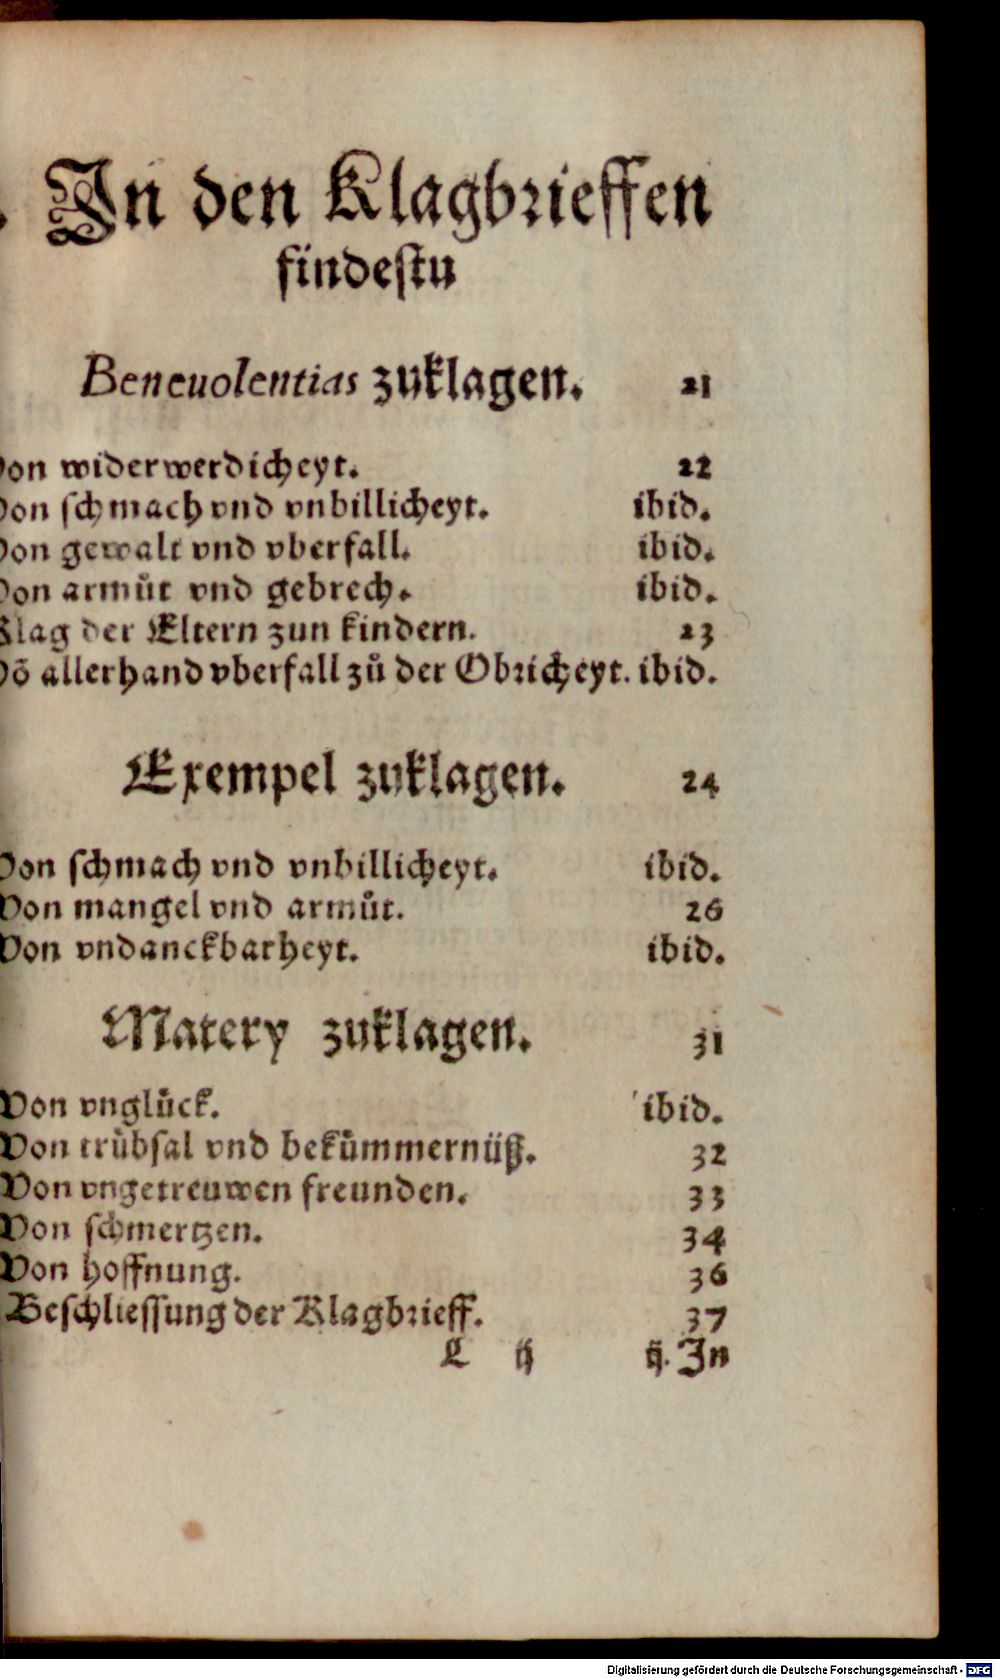 . In den Klagbrieffen
findestu
Beneuolentias zuklagen. 21
Von widerwerdicheyt. 22
Von schmach vnd vnbillicheyt. ibid.
Von gewalt vnd vberfall. ibid.
Von armůt vnd gebrech. ibid.
Klag der Eltern zun kindern. 23
Võ allerhand vberfall zů der Obricheyt. ibid.
Exempel zuklagen. 24
Von schmach vnd vnbillicheyt. ibid.
Von mangel vnd armůt. 26
Von vndanckbarheyt. ibid.
Matery zuklagen. 31
Von vnglück. ibid.
Von trübsal vnd bekümmernüß. 32
Von vngetreuwen freunden. 33
Von schmertzen. 34
Von hoffnung. 36
Beschliessung der Klagbrieff. 37
C ij ij. In
Digitalisierung gefördert durch die Deutsche Forschungsgemeinschaft - DFG